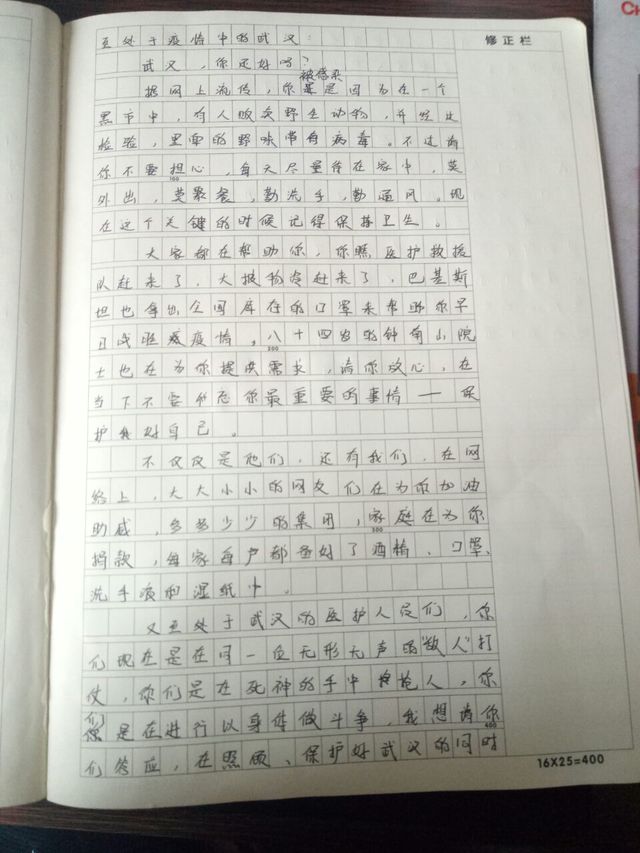 至处于疫情中的武汉：
修正栏
武汉，你还好吗？
被感染
据网上流传，你是因为在一个
黑市中，有人贩卖野生动物，并经过
检验，里面的野味带有病毒。不过请
你不要担心，每天尽量待在家中，莫
100
外出，莫聚餐，勤洗手，勤通风。现
在这个关键的时候记得保持卫生。
大家都在帮助你，你瞧医护救援
队赶来了，大批物资赶来了，巴基斯
坦也拿出全国库存的口罩来帮助你早
日战胜疫情。八十四岁的钟南山院
200
士也在为你提供需求，请你放心，在
当下不要忘你最重要的事情——保
护好自己。
不仅仅是他们，还有我们，在网
络上，大大小小的网友们在为你加油
助威，多多少少的集团，家庭在为你
300
捐款，每家每户都备好了酒精、口罩、
洗手液和湿纸巾。
又至处于武汉的医护人员们，你
们现在是在同一位无形无声的“敌人”打
仗，你们是在死神的手中抢人，你
们是在进行以身体做斗争，我想请你
400
们答应，在照顾、保护好武汉的同时
16X25=400